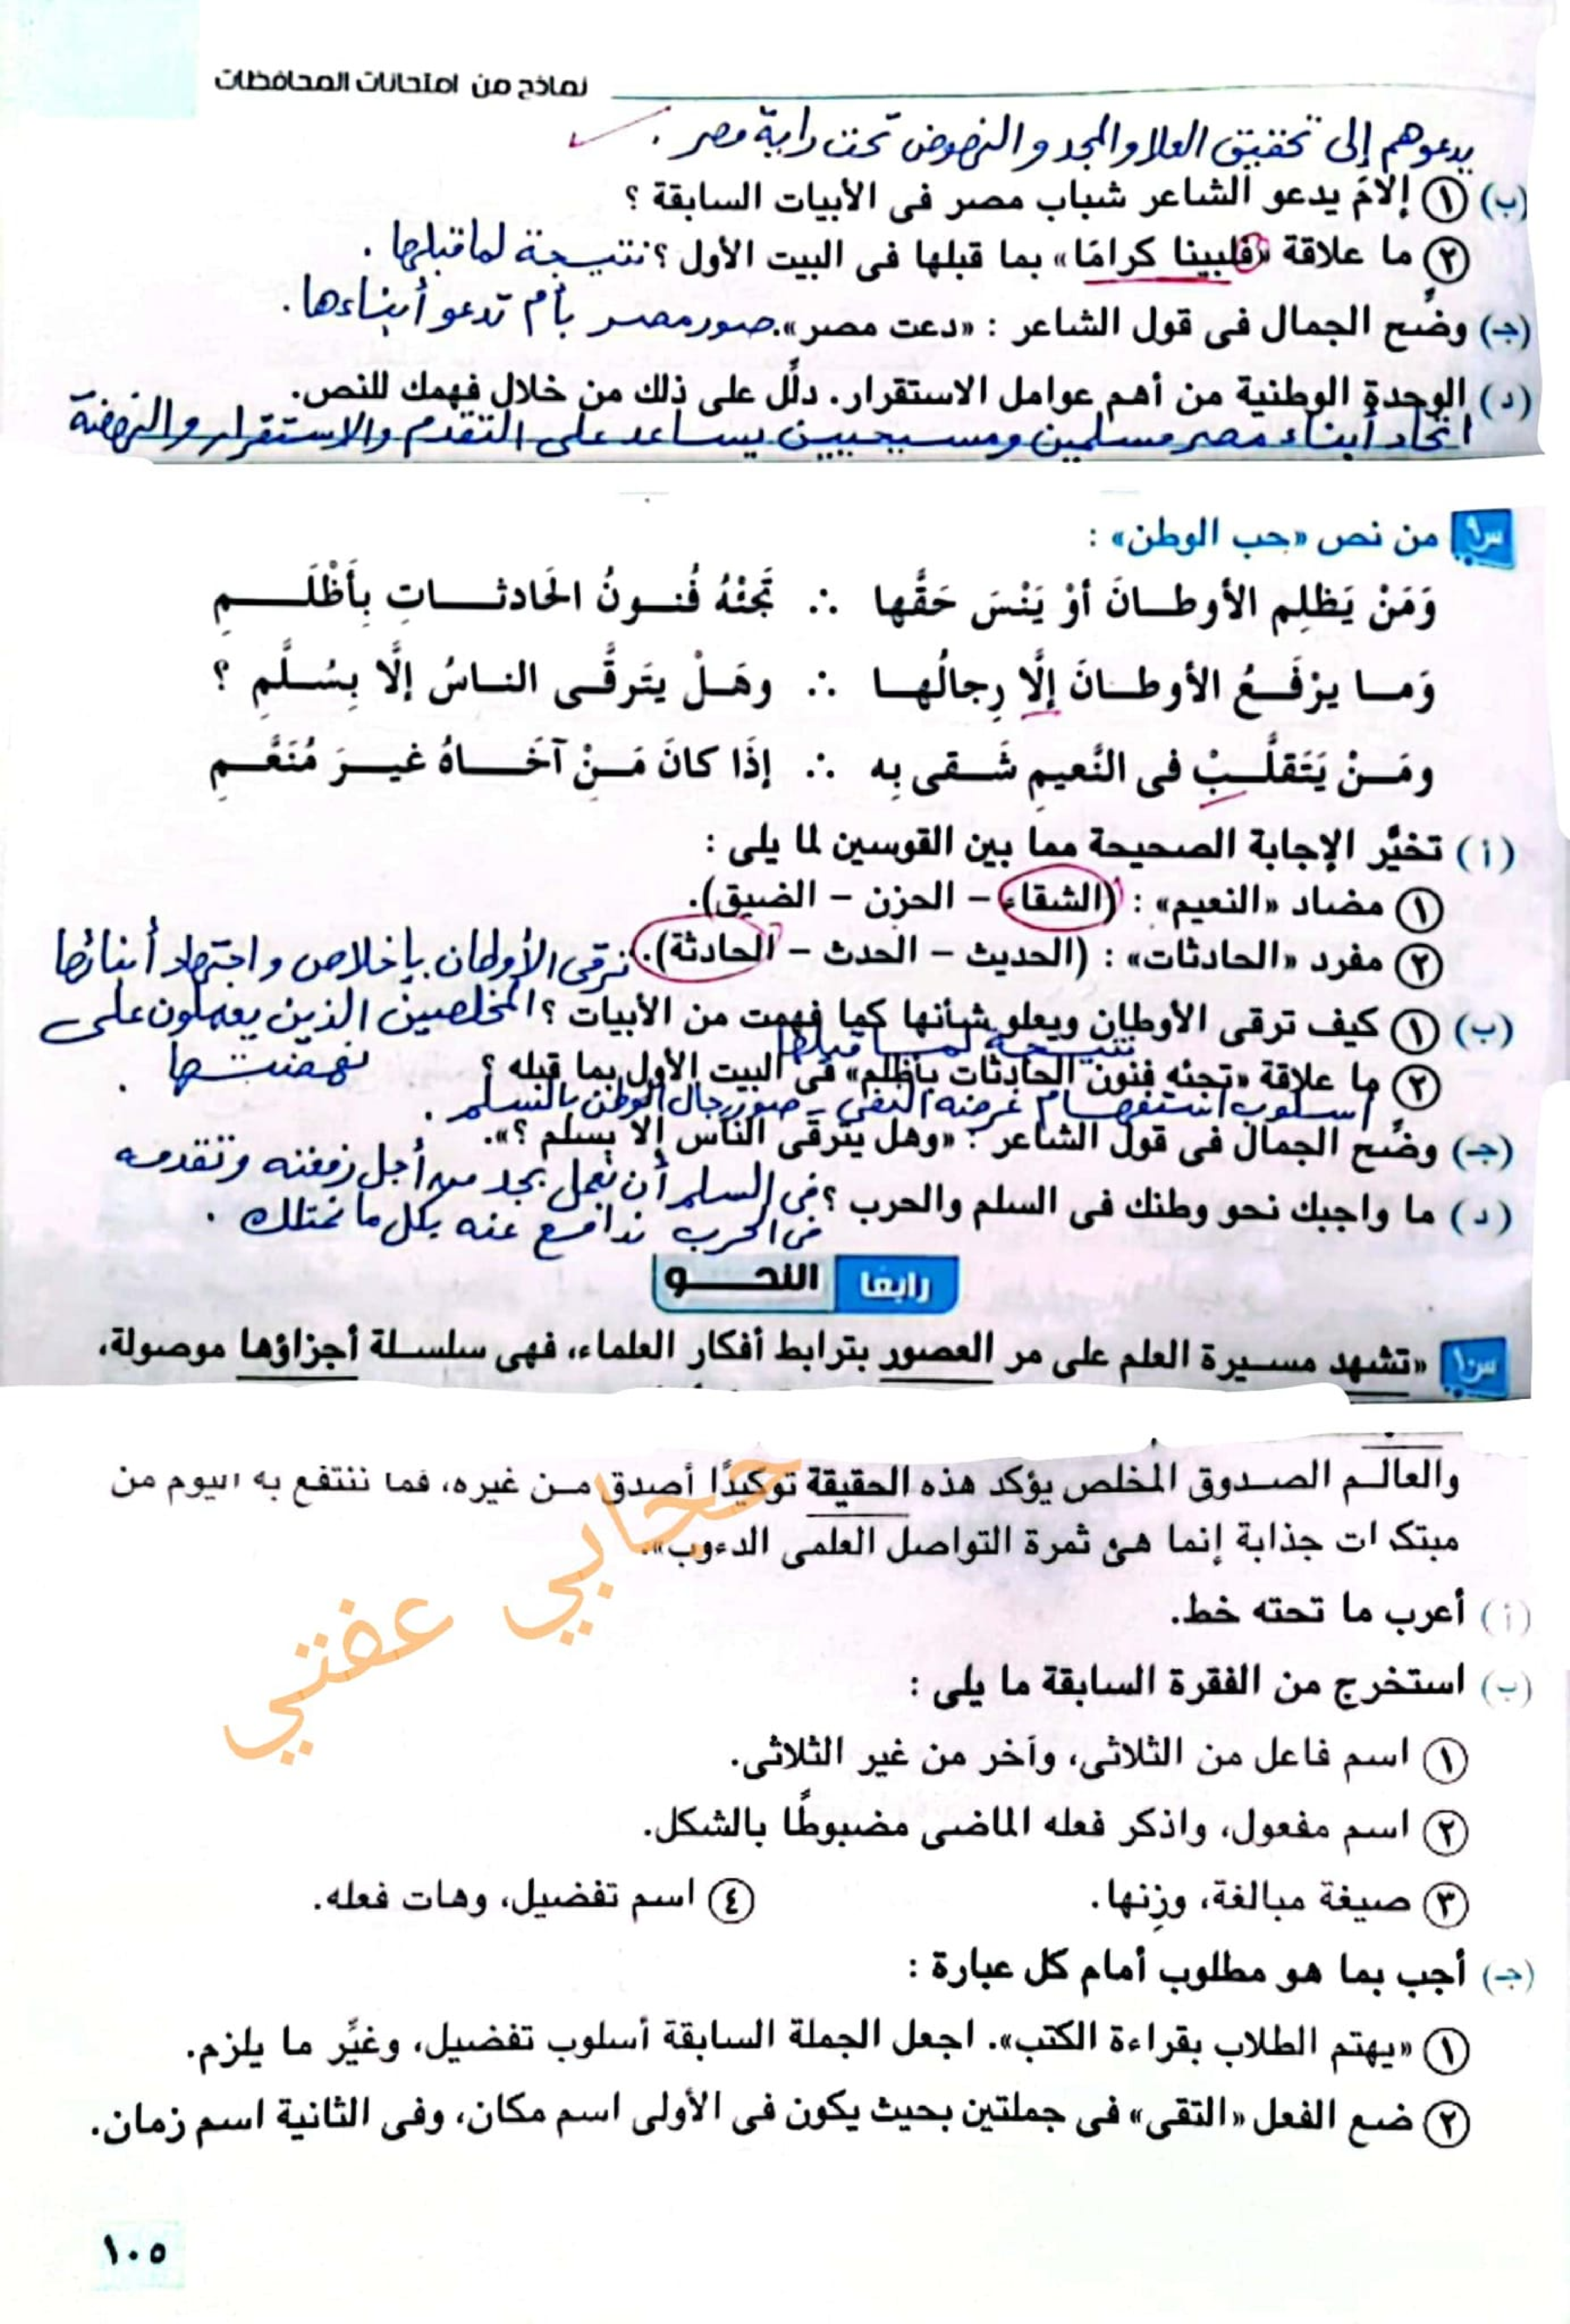 نماذج من امتحانات المحافظات
يدعوهم إلى تحقيق العلا والمجد والنهوض تحت راية مصر .
(ب) ١ إلامَ يدعو الشاعر شباب مصر فى الأبيات السابقة ؟
٢ ما علاقة «فلبينا كرامًا» بما قبلها فى البيت الأول ؟ نتيجة لما قبلها .
(جـ) وضِّح الجمال فى قول الشاعر : «دعت مصر». صور مصر بأم تدعو أبناءها .
(د) الوحدة الوطنية من أهم عوامل الاستقرار. دلِّل على ذلك من خلال فهمك للنص.
اتحاد أبناء مصر مسلمين ومسيحيين يساعد على التقدم والاستقرار والنهضة
س٩ من نص «حب الوطن» :
وَمَنْ يَظلِم الأوطـانَ أوْ يَنْسَ حَقَّها ∴ تَجِئْهُ فُنـونُ الحَادثـاتِ بِأَظْلَـمِ
وَمـا يرْفَـعُ الأوطـانَ إلَّا رِجالُهـا ∴ وهَـلْ يتَرقَّـى النـاسُ إلَّا بِسُـلَّمِ ؟
ومَـنْ يَتَقلَّـبْ فى النَّعيمِ شَـقى بِه ∴ إذَا كانَ مَـنْ آخَـاهُ غيـرَ مُنَعَّـمِ
(أ) تخيَّر الإجابة الصحيحة مما بين القوسين لما يلى :
١ مضاد «النعيم» : (الشقاء - الحزن - الضيق).
٢ مفرد «الحادثات» : (الحديث - الحدث - الحادثة). ترقى الأوطان بإخلاص واجتهاد أبنائها
(ب) ١ كيف ترقى الأوطان ويعلو شأنها كما فهمت من الأبيات ؟ المخلصين الذين يعملون على
نتيجة لما قبلها
٢ ما علاقة «تجئه فنون الحادثات بأظلم» فى البيت الأول بما قبله ؟ نهضتها .
أسلوب استفهام غرضه النفى - صور رجال الوطن بالسلم .
(جـ) وضِّح الجمال فى قول الشاعر : «وهل يترقَّى الناس إلا بسلم ؟».
(د) ما واجبك نحو وطنك فى السلم والحرب ؟ فى السلم أن نعمل بجد من أجل رفعته وتقدمه
فى الحرب ندافع عنه بكل ما نمتلك .
رابعًا النحـــو
س١٠ «تشهد مسيرة العلم على مر العصور بترابط أفكار العلماء، فهى سلسلة أجزاؤها موصولة،
والعالم الصدوق المخلص يؤكد هذه الحقيقة توكيدًا أصدق من غيره، فما ننتفع به اليوم من
مبتكرات جذابة إنما هى ثمرة التواصل العلمى الدءوب».
حجابي عفتي
(أ) أعرب ما تحته خط.
(ب) استخرج من الفقرة السابقة ما يلى :
١ اسم فاعل من الثلاثى، وآخر من غير الثلاثى.
٢ اسم مفعول، واذكر فعله الماضى مضبوطًا بالشكل.
٣ صيغة مبالغة، وزِنها. ٤ اسم تفضيل، وهات فعله.
(جـ) أجب بما هو مطلوب أمام كل عبارة :
١ «يهتم الطلاب بقراءة الكتب». اجعل الجملة السابقة أسلوب تفضيل، وغيِّر ما يلزم.
٢ ضع الفعل «التقى» فى جملتين بحيث يكون فى الأولى اسم مكان، وفى الثانية اسم زمان.
١٠٥